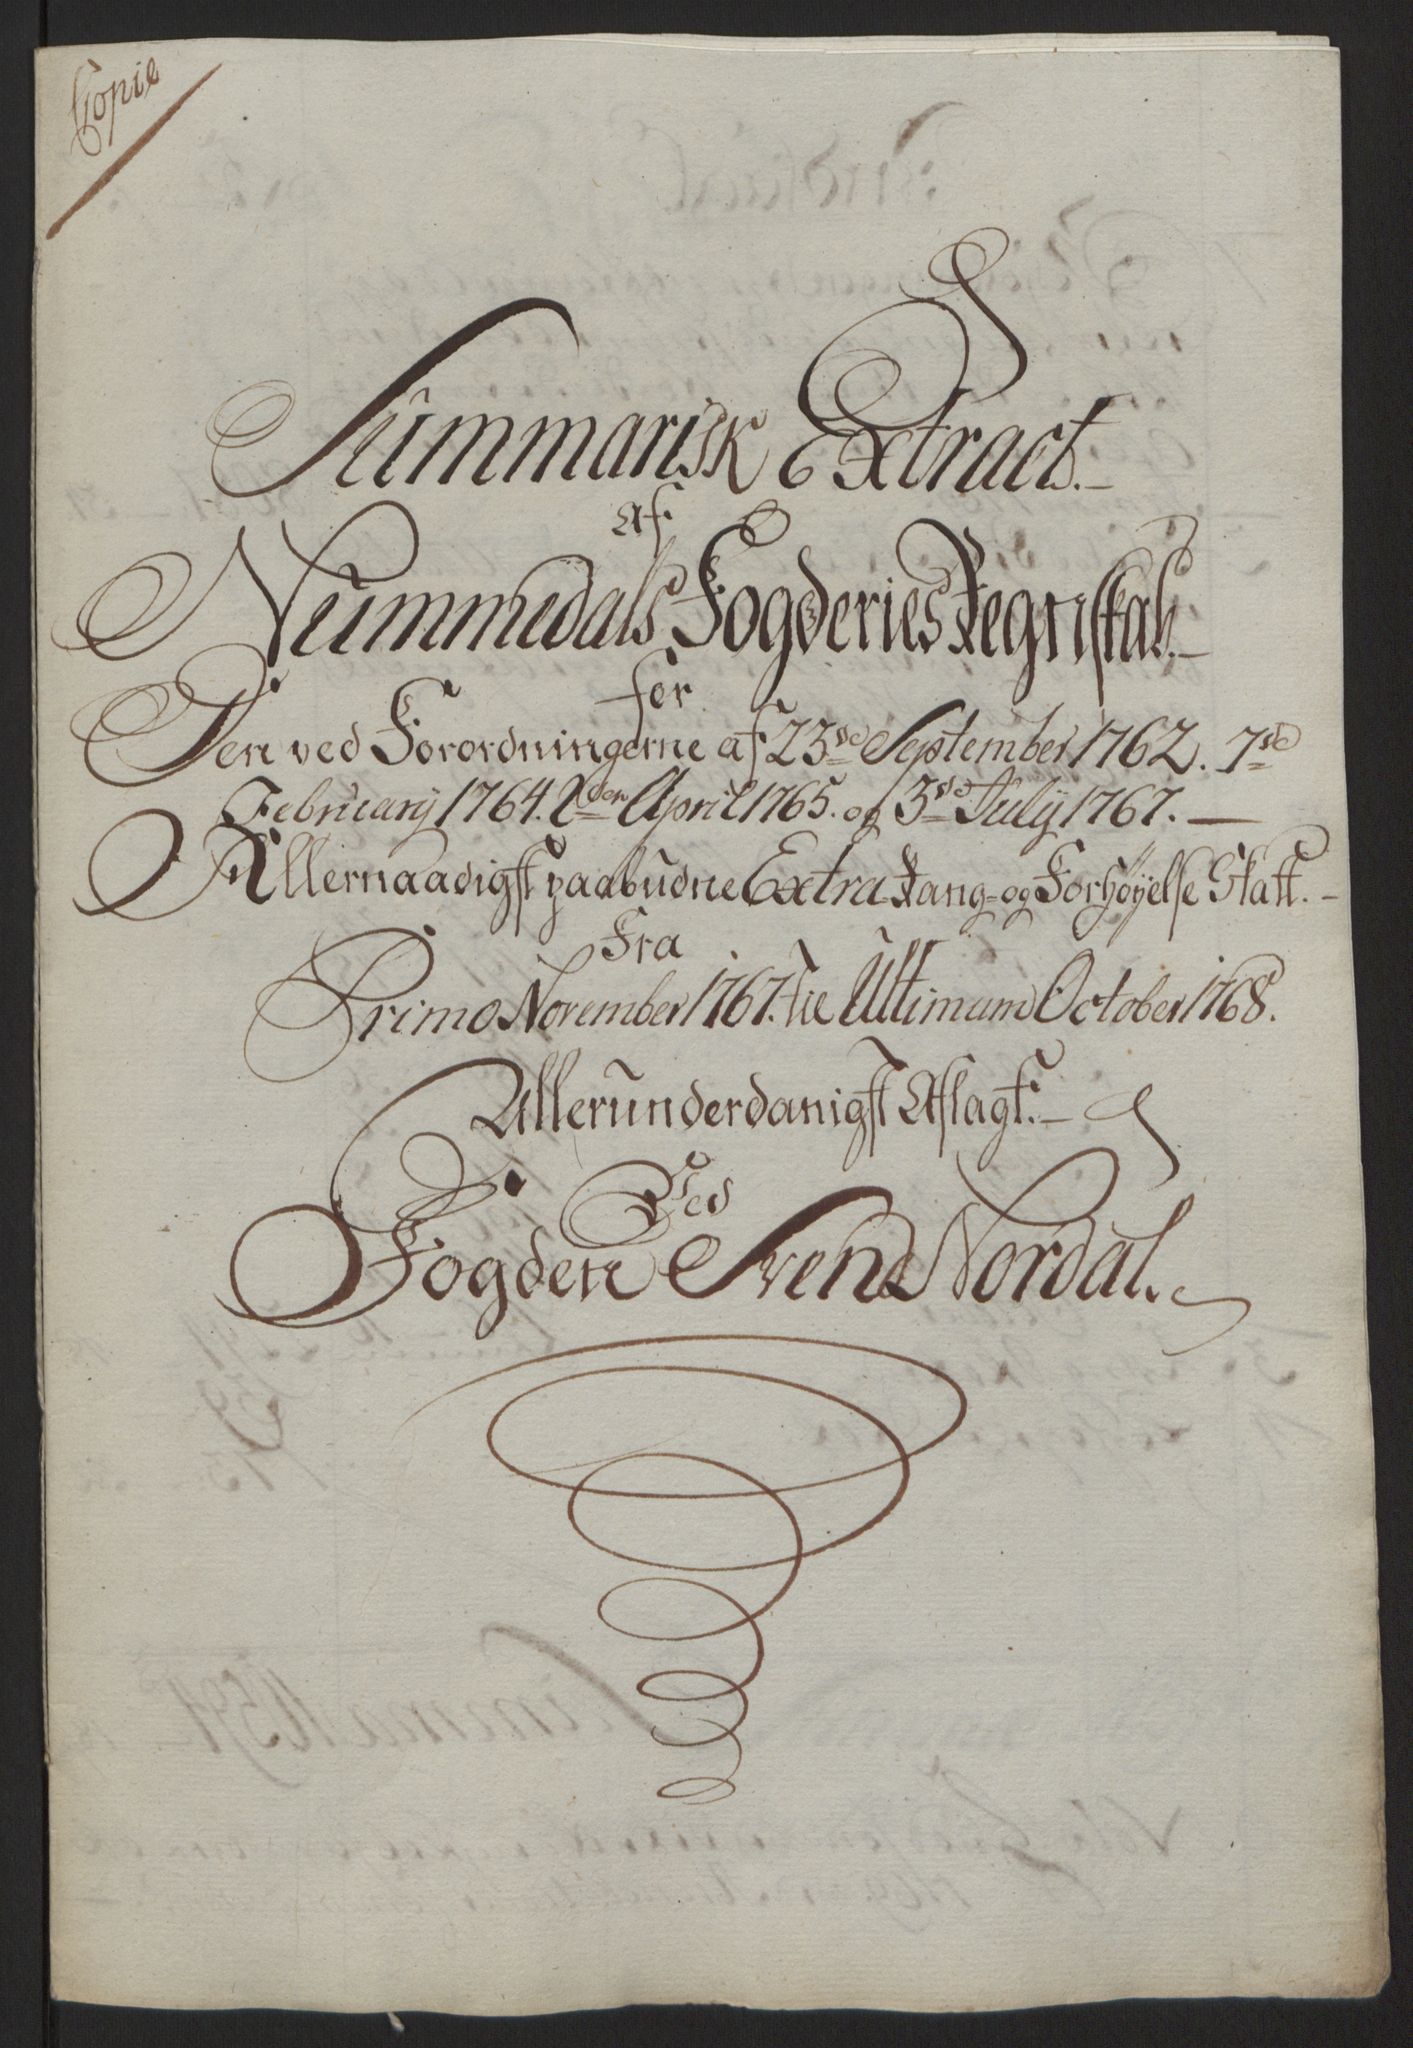 Copie
Summarisk Extract.
Af
Nummedals Fogderies Regnskab.
for
Den ved Forordningerne af 23de September 1762. 7de
Februarij 1764. 2den April 1765. og 3de Julij 1767.
Allernaadigst paabudne Extra- Rang- og Forhøyelse Skatt.
Fra
Primo November 1767. til Ultimum October 1768.
Allerunderdanigst Aflagt.
Ved
Fogden Svend Nordal.